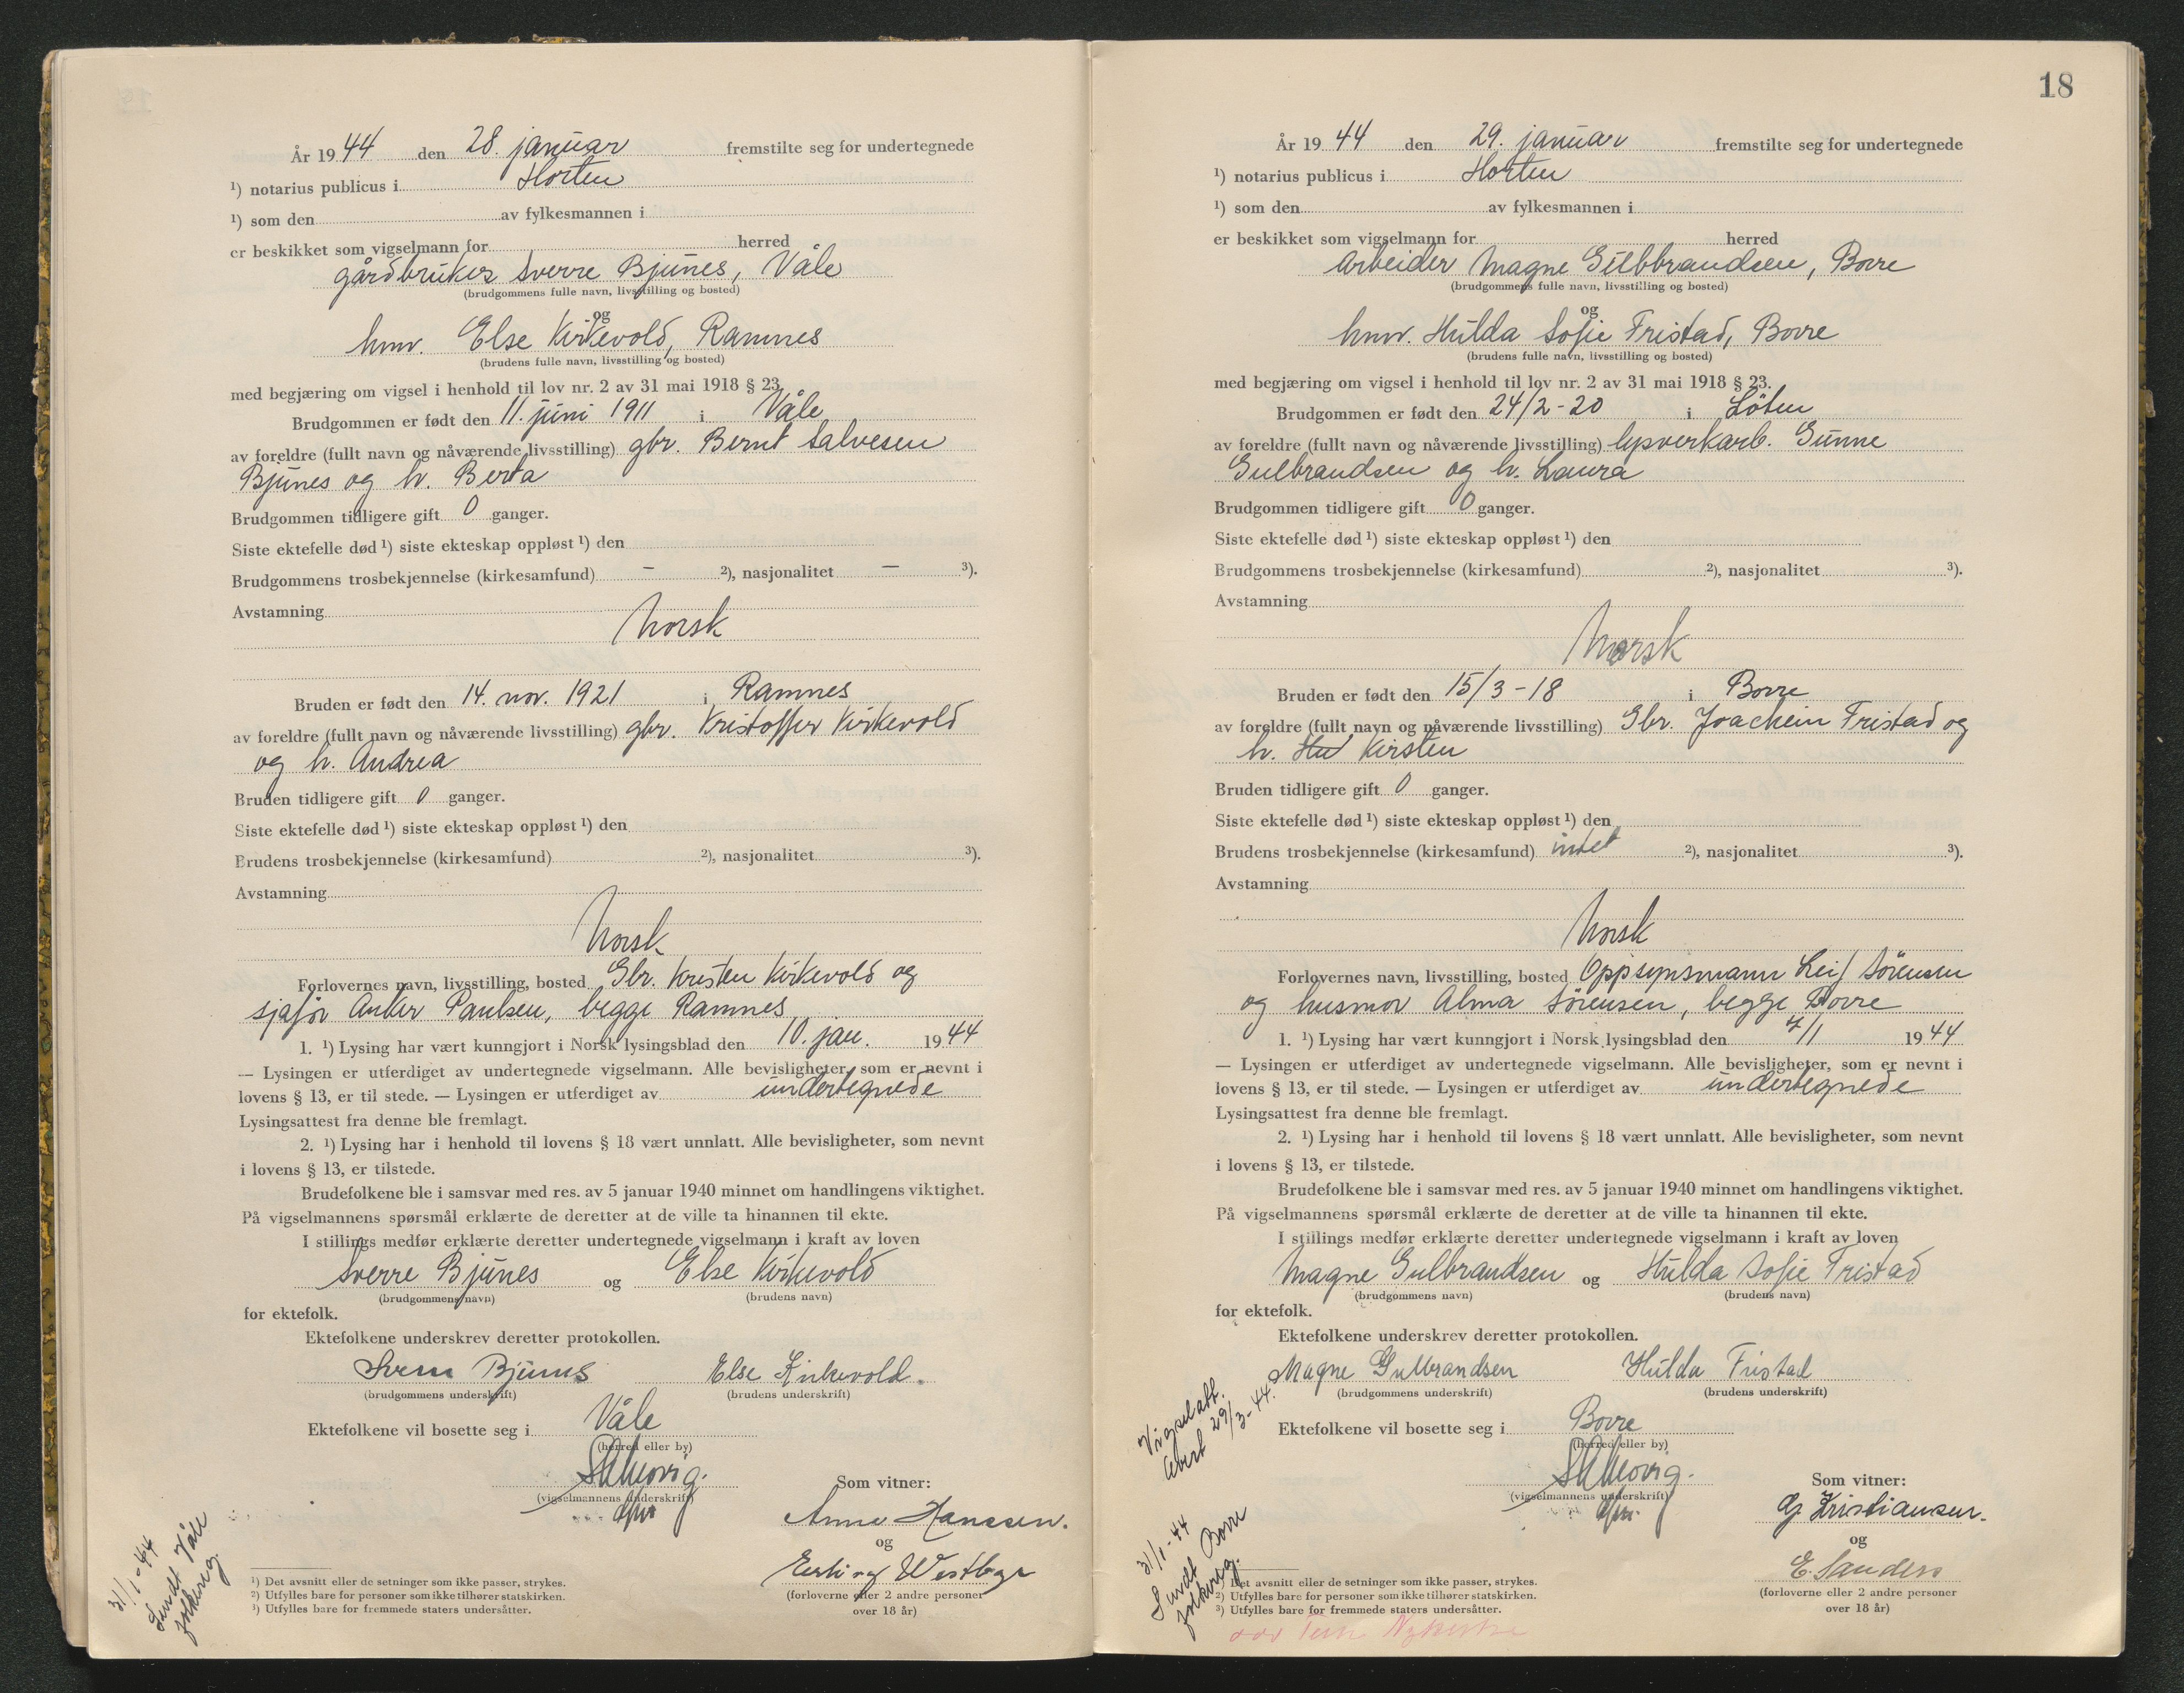 År 1944 den 28. januar fremstilte seg for undertegnede
¹) notarius publicus i Horten
¹) som den av fylkesmannen i
er beskikket som vigselmann for herred
gårdbruker Sverre Bjunes, Våle
(brudgommens fulle navn, livsstilling og bosted)
og
hmv. Else Kirkevold, Ramnes
(brudens fulle navn, livsstilling og bosted)
med begjæring om vigsel i henhold til lov nr. 2 av 31 mai 1918 § 23.
Brudgommen er født den 11. juni 1911 i Våle
av foreldre (fullt navn og nåværende livsstilling) gbr. Bernt Salvesen
Bjunes og h. Berta
Brudgommen tidligere gift 0 ganger.
Siste ektefelle død ¹) siste ekteskap oppløst ¹) den
Brudgommens trosbekjennelse (kirkesamfund) – ²), nasjonalitet – ³).
Avstamning
Norsk
Bruden er født den 14. nov. 1921 i Ramnes
av foreldre (fullt navn og nåværende livsstilling) gbr. Kristoffer Kirkevold
og h. Andrea
Bruden tidligere gift 0 ganger.
Siste ektefelle død ¹) siste ekteskap oppløst ¹) den
Brudens trosbekjennelse (kirkesamfund) ²), nasjonalitet ³).
Avstamning
Norsk
Forlovernes navn, livsstilling, bosted Gbr. Kristen Kirkevold og
sjafør Anker Paulsen, begge Ramnes
1. ¹) Lysing har vært kunngjort i Norsk lysingsblad den 10. jan. 1944
— Lysingen er utferdiget av undertegnede vigselmann. Alle bevisligheter, som er nevnt i
lovens § 13, er til stede. — Lysingen er utferdiget av undertegnede
Lysingsattest fra denne ble fremlagt.
2. ¹) Lysing har i henhold til lovens § 18 vært unnlatt. Alle bevisligheter, som nevnt
i lovens § 13, er tilstede.
Brudefolkene ble i samsvar med res. av 5 januar 1940 minnet om handlingens viktighet.
På vigselmannens spørsmål erklærte de deretter at de ville ta hinannen til ekte.
I stillings medfør erklærte deretter undertegnede vigselmann i kraft av loven
Sverre Bjunes og Else Kirkevold
(brudgommens navn) (brudens navn)
for ektefolk.
Ektefolkene underskrev deretter protokollen.
Sverre Bjunes Else Kirkevold.
(brudgommens underskrift) (brudens underskrift)
Ektefolkene vil bosette seg i Våle
(herred eller by)
(vigselmannens underskrift)
Som vitner:
Anna Hanssen.
og
Erling
(forloverne eller 2 andre personer
over 18 år)
31/1-44
Sendt Våle
folkereg.
¹) Det avsnitt eller de setninger som ikke passer, strykes.
²) Utfylles bare for personer som ikke tilhører statskirken.
³) Utfylles bare for fremmede staters undersåtter.
18
År 1944 den 29. januar fremstilte seg for undertegnede
¹) notarius publicus i Horten
¹) som den av fylkesmannen i
er beskikket som vigselmann for herred
Arbeider Magne Gulbbrandsen, Borre
(brudgommens fulle navn, livsstilling og bosted)
og
hmv. Hulda Sofie Fristad, Borre
(brudens fulle navn, livsstilling og bosted)
med begjæring om vigsel i henhold til lov nr. 2 av 31 mai 1918 § 23.
Brudgommen er født den 24/2-20 i Löten
av foreldre (fullt navn og nåværende livsstilling) lysverkarb. Gunne
Gulbrandsen og h. Laura
Brudgommen tidligere gift 0 ganger.
Siste ektefelle død ¹) siste ekteskap oppløst ¹) den
Brudgommens trosbekjennelse (kirkesamfund) ²), nasjonalitet ³).
Avstamning
Norsk
Bruden er født den 15/3-18 i Borre
av foreldre (fullt navn og nåværende livsstilling) Gbr. Joachein Fristad og
h. Hu Kirsten
Bruden tidligere gift 0 ganger.
Siste ektefelle død ¹) siste ekteskap oppløst ¹) den
Brudens trosbekjennelse (kirkesamfund) intet ²), nasjonalitet ³).
Avstamning
Norsk
Forlovernes navn, livsstilling, bosted Oppsynsmann Leif Sörensen
og husmor Alma Sörensen, begge Borre
1. ¹) Lysing har vært kunngjort i Norsk lysingsblad den 7/1 1944
— Lysingen er utferdiget av undertegnede vigselmann. Alle bevisligheter, som er nevnt i
lovens § 13, er til stede. — Lysingen er utferdiget av undertegnede
Lysingsattest fra denne ble fremlagt.
2. ¹) Lysing har i henhold til lovens § 18 vært unnlatt. Alle bevisligheter, som nevnt
i lovens § 13, er tilstede.
Brudefolkene ble i samsvar med res. av 5 januar 1940 minnet om handlingens viktighet.
På vigselmannens spørsmål erklærte de deretter at de ville ta hinannen til ekte.
I stillings medfør erklærte deretter undertegnede vigselmann i kraft av loven
Magne Gulbrandsen og Hulda Sofie Fristad
(brudgommens navn) (brudens navn)
for ektefolk.
Ektefolkene underskrev deretter protokollen.
Magne Gulbrandsen Hulda Fristad
(brudgommens underskrift) (brudens underskrift)
Ektefolkene vil bosette seg i Borre
(herred eller by)
(vigselmannens underskrift)
Som vitner:
Kristiansen.
og
E. Sanders
(forloverne eller 2 andre personer
over 18 år)
Vigselatt.
29/3-44.
31/1-44
Sendt Borre
folkereg.
¹) Det avsnitt eller de setninger som ikke passer, strykes.
²) Utfylles bare for personer som ikke tilhører statskirken.
³) Utfylles bare for fremmede staters undersåtter.